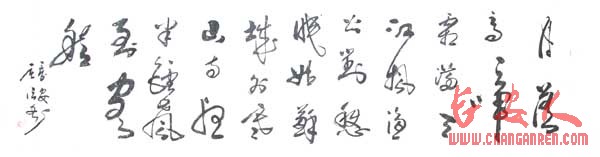 月落
烏啼
霜滿天
江楓漁
火對愁
眠姑蘇
城外寒
山寺夜
半鐘聲
到客
船
长安人
WWW.CHANGANREN.COM